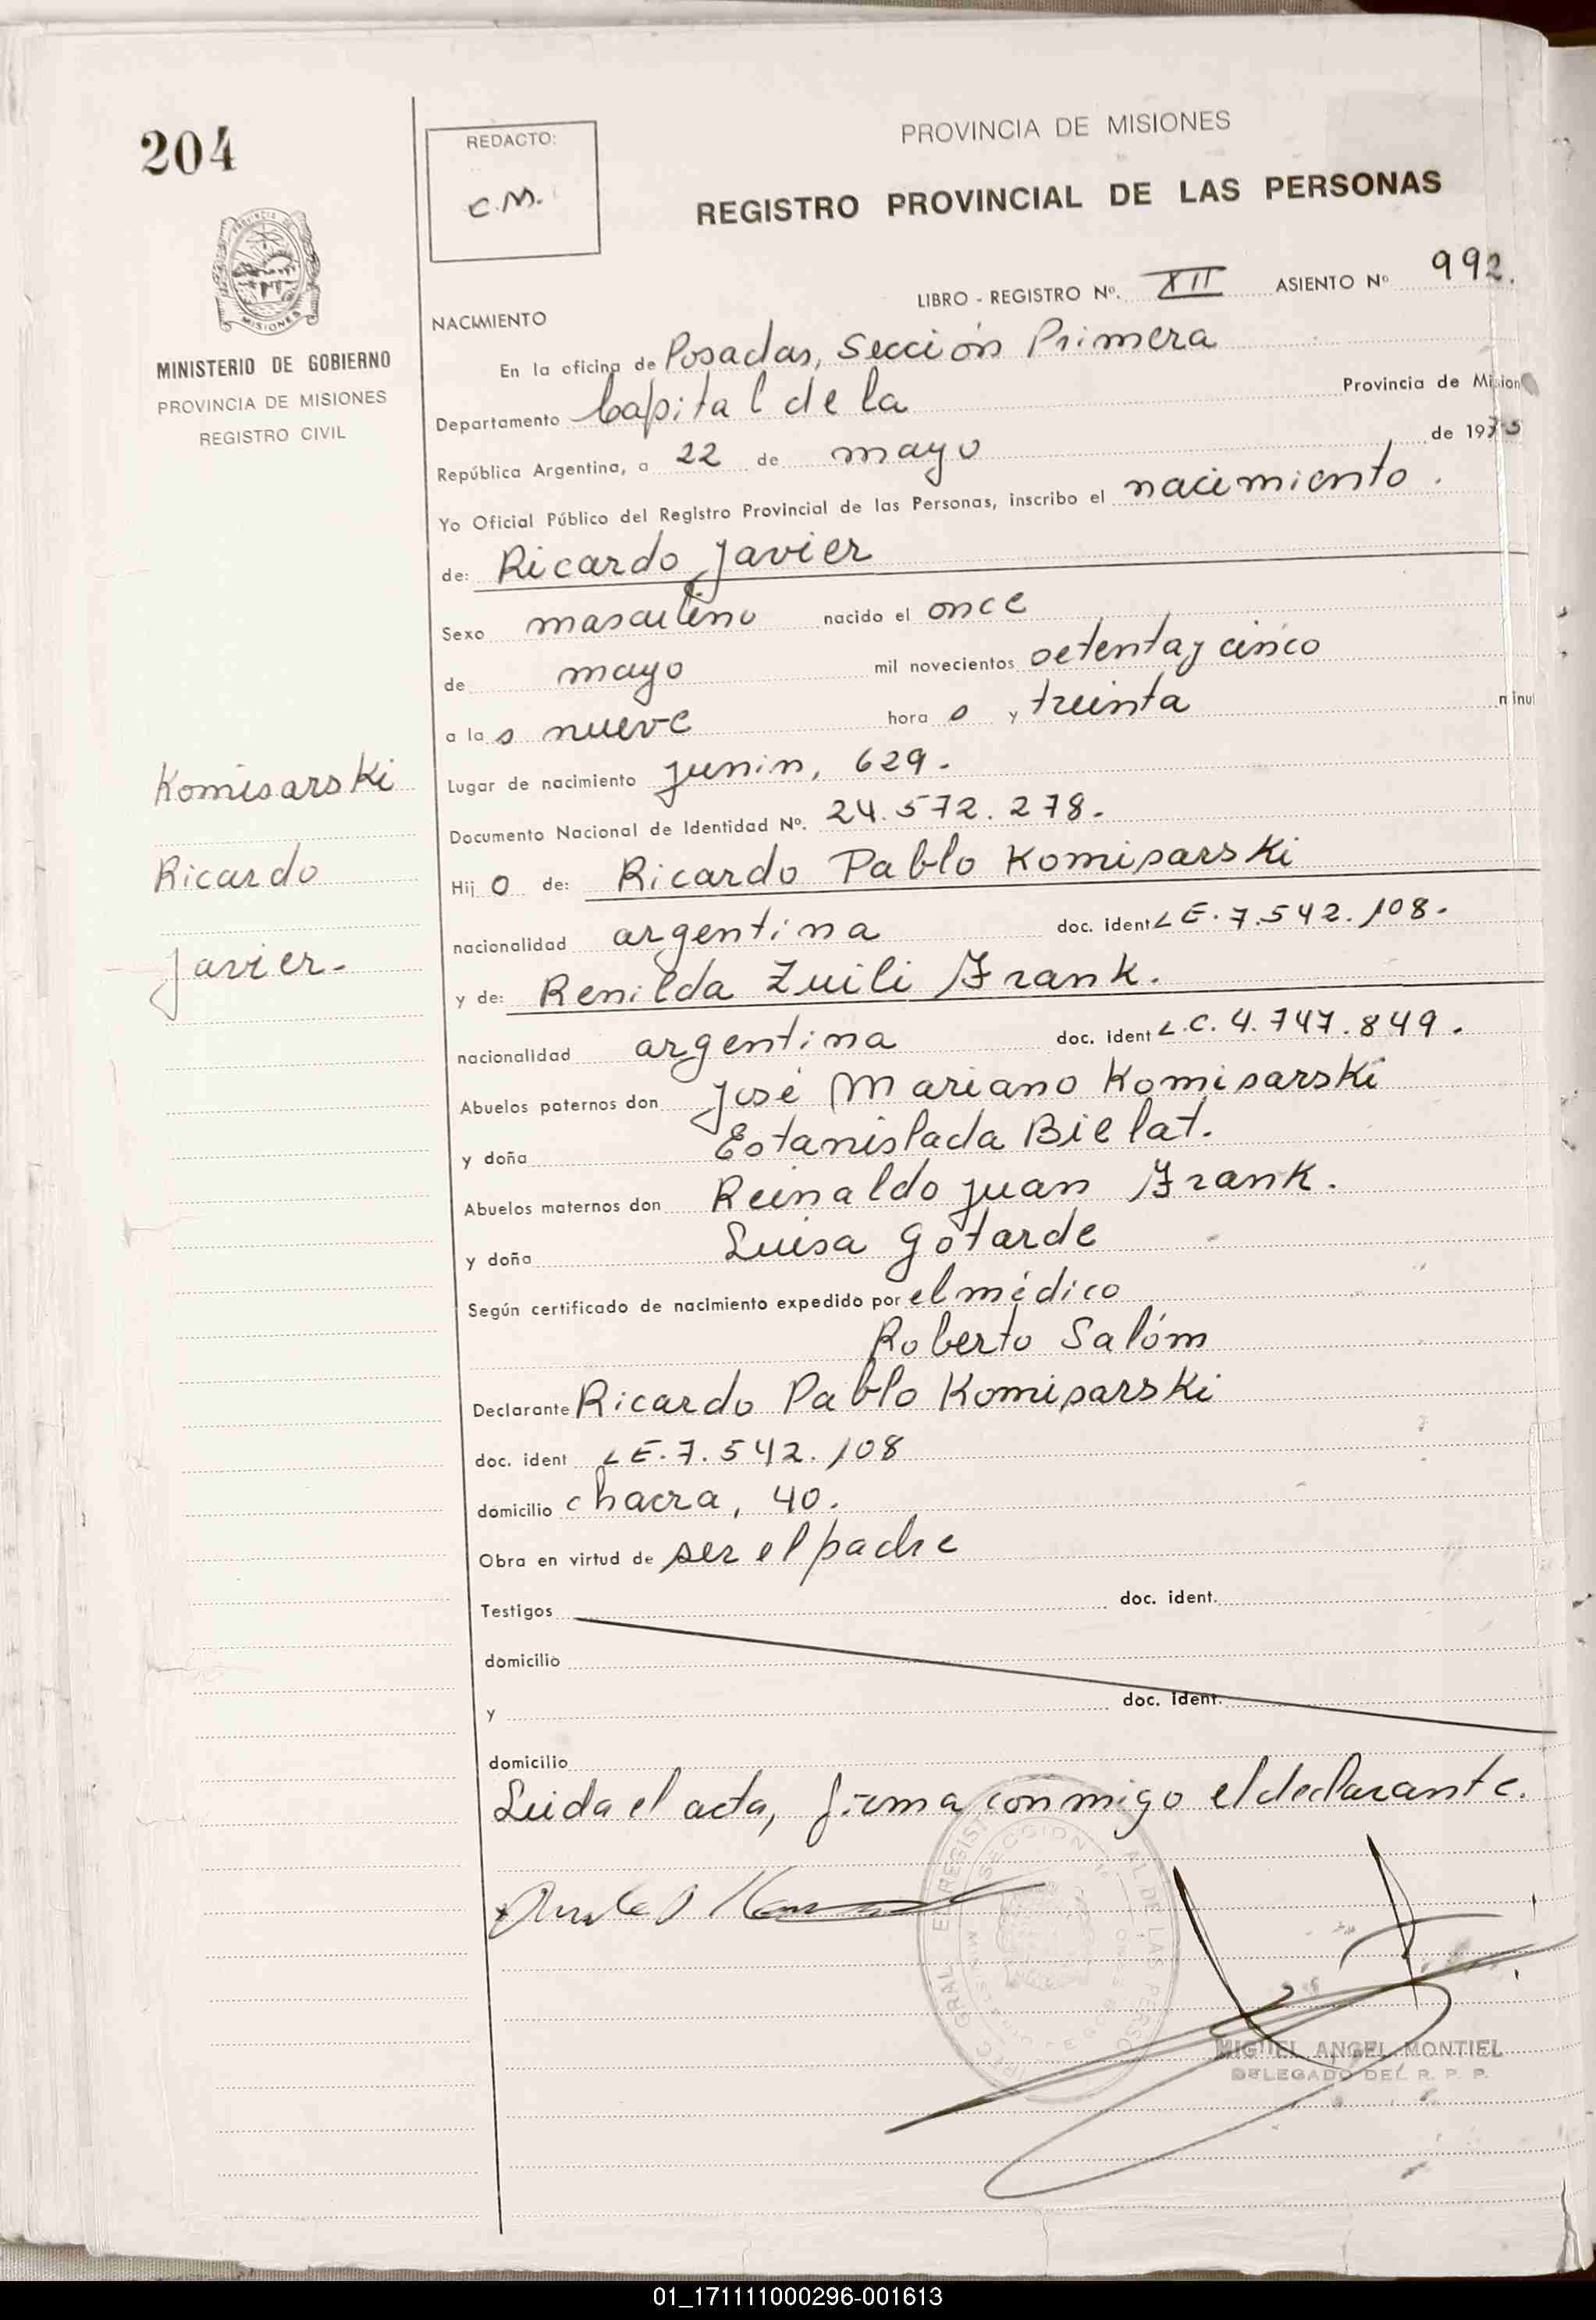 204
REDACTO:
C.M.
PROVINCIA DE MISIONES
REGISTRO PROVINCIAL DE LAS PERSONAS
MISIONES
MINISTERIO DE GOBIERNO
PROVINCIA DE MISIONES
REGISTRO CIVIL
LIBRO - REGISTRO Nº. XII ASIENTO Nº 992.
NACIMIENTO
En la oficina de Posadas, Sección Primera
Departamento Capital de la Provincia de Mision
República Argentina, a 22 de mayo de 1975
Yo Oficial Público del Registro Provincial de las Personas, inscribo el nacimiento.
de: Ricardo Javier
Sexo masculino nacido el once
de mayo mil novecientos setenta y cinco
a las nueve horas y treinta minu
Lugar de nacimiento Junin, 629.
Documento Nacional de Identidad Nº. 24.572.278.
Hijo de: Ricardo Pablo Komisarski
nacionalidad argentina doc. ident L E. 7.542.108.
y de: Renilda Zuili Frank.
nacionalidad argentina doc. ident L.C. 4.747.849.
Abuelos paternos don José Mariano Komisarski
y doña Estanislada Bielat.
Abuelos maternos don Reinaldo Juan Frank.
y doña Luisa Gotarde
Según certificado de nacimiento expedido por el médico
Roberto Salóm
Declarante Ricardo Pablo Komisarski
doc. ident L E. 7.542.108
domicilio chacra, 40.
Obra en virtud de ser el padre
Testigos doc. ident.
domicilio
y doc. ident.
domicilio
Leida el acta, firma conmigo el declarante.
Komisarski
Ricardo
Javier.
MIGUEL ANGEL MONTIEL
DELEGADO DEL R. P. P.
01_171111000296-001613